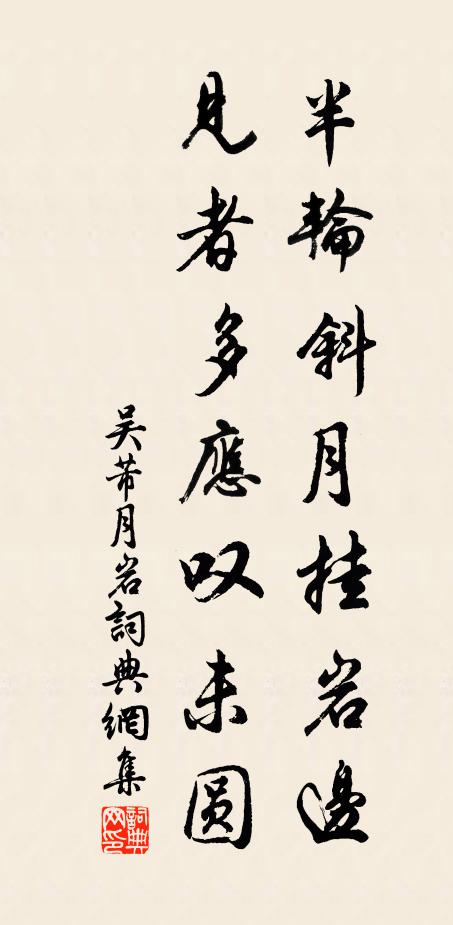 半輪斜月挂岩邊
見者多應叹未圓
吳芾月岩詞典網集
詞典网印